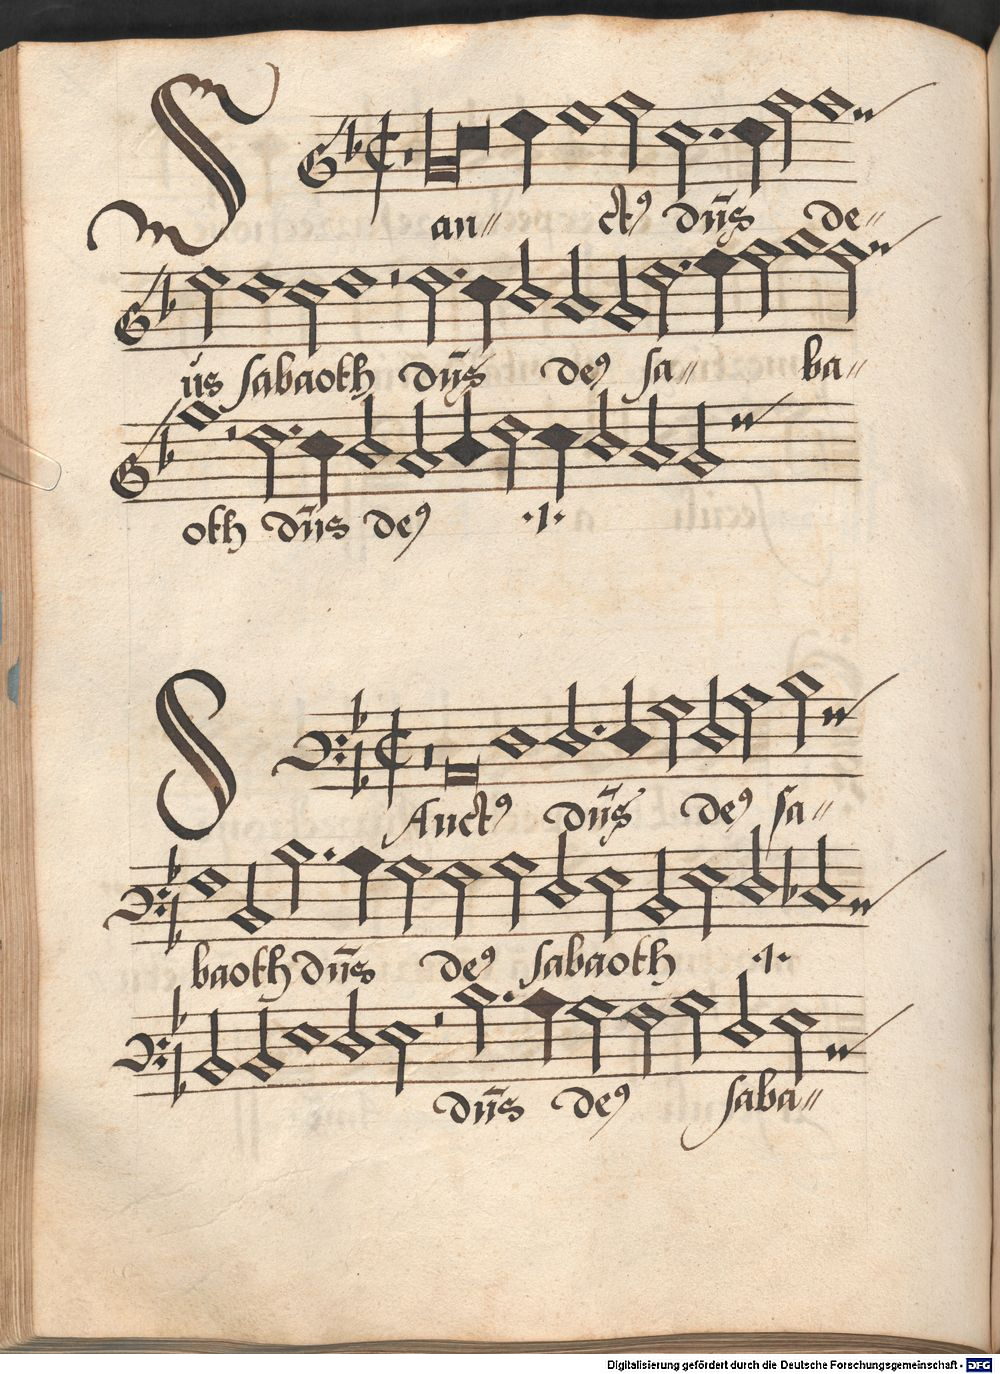 San〃 ctꝰ dn̄s de〃
us sabaoth dn̄s deꝰ sa〃 ba〃
oth dn̄s deꝰ ·1·
SAnctꝰ dn̄s deꝰ sa〃
baoth dn̄s deꝰ sabaoth ·1·
dn̄s deꝰ saba〃
Digitalisierung gefördert durch die Deutsche Forschungsgemeinschaft - DFG